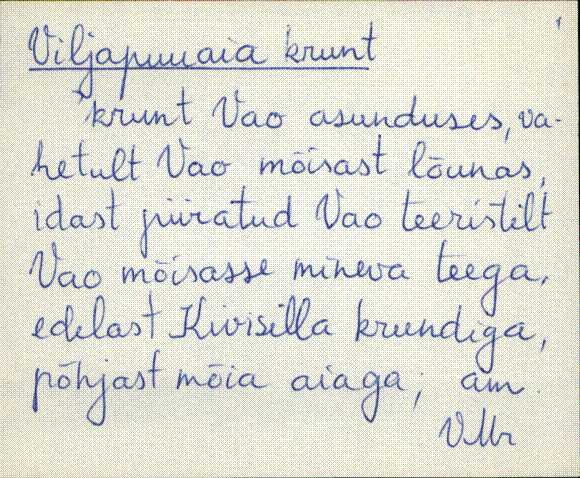 Viljapuuaia krunt
krunt Vao asunduses, va-
hetult Vao mõisast lõunas,
idast piiratud Vao teeristilt
Vao mõisasse mineva teega,
edelast Kivisilla krundiga,
põhjast mõia aiaga; am.
VMr